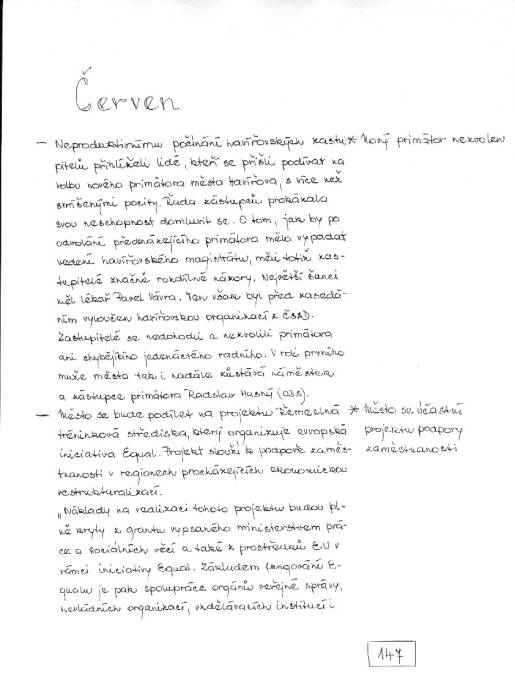 Červen
– Neproduktivnímu počínání havířovských zastu- * Nový primátor nezvolen
pitelů přihlíželi lidé, kteří se přišli podívat na
volbu nového primátora města Havířova, s více než
smíšenými pocity. Řada zástupců prokázala
svou neschopnost domluvit se. O tom, jak by po
odvolání předcházejícího primátora mělo vypadat
vedení havířovského magistrátu, měli totiž zas-
tupitelé značně rozdílné názory. Největší šanci
měl lékař Pavel Vávra. Ten však byl před zasedá-
ním vyloučen havířovskou organizací z ČSSD.
Zastupitelé se nedohodli a nezvolili primátora
ani chybějícího jedenáctého radního. V roli prvního
muže města tak i nadále zůstává náměstek
a zástupce primátora Radslav Hasný (ODS).
– Město se bude podílet na projektu Řemeslná * Město se účastní
tréninková střediska, který organizuje evropská projektu podpory
iniciativa Equal. Projekt slouží k podpoře zaměs- zaměstnanosti
tnanosti v regionech procházejících ekonomickou
restrukturalizací.
„Náklady na realizaci tohoto projektu budou pl-
ně kryty z grantu vypsaného ministerstvem prá-
ce a sociálních věcí a také z prostředků EU v
rámci iniciativy Equal. Základem fungování E-
qualu je pak spolupráce orgánů veřejné správy,
nevládních organizací, vzdělávacích institucí i
147